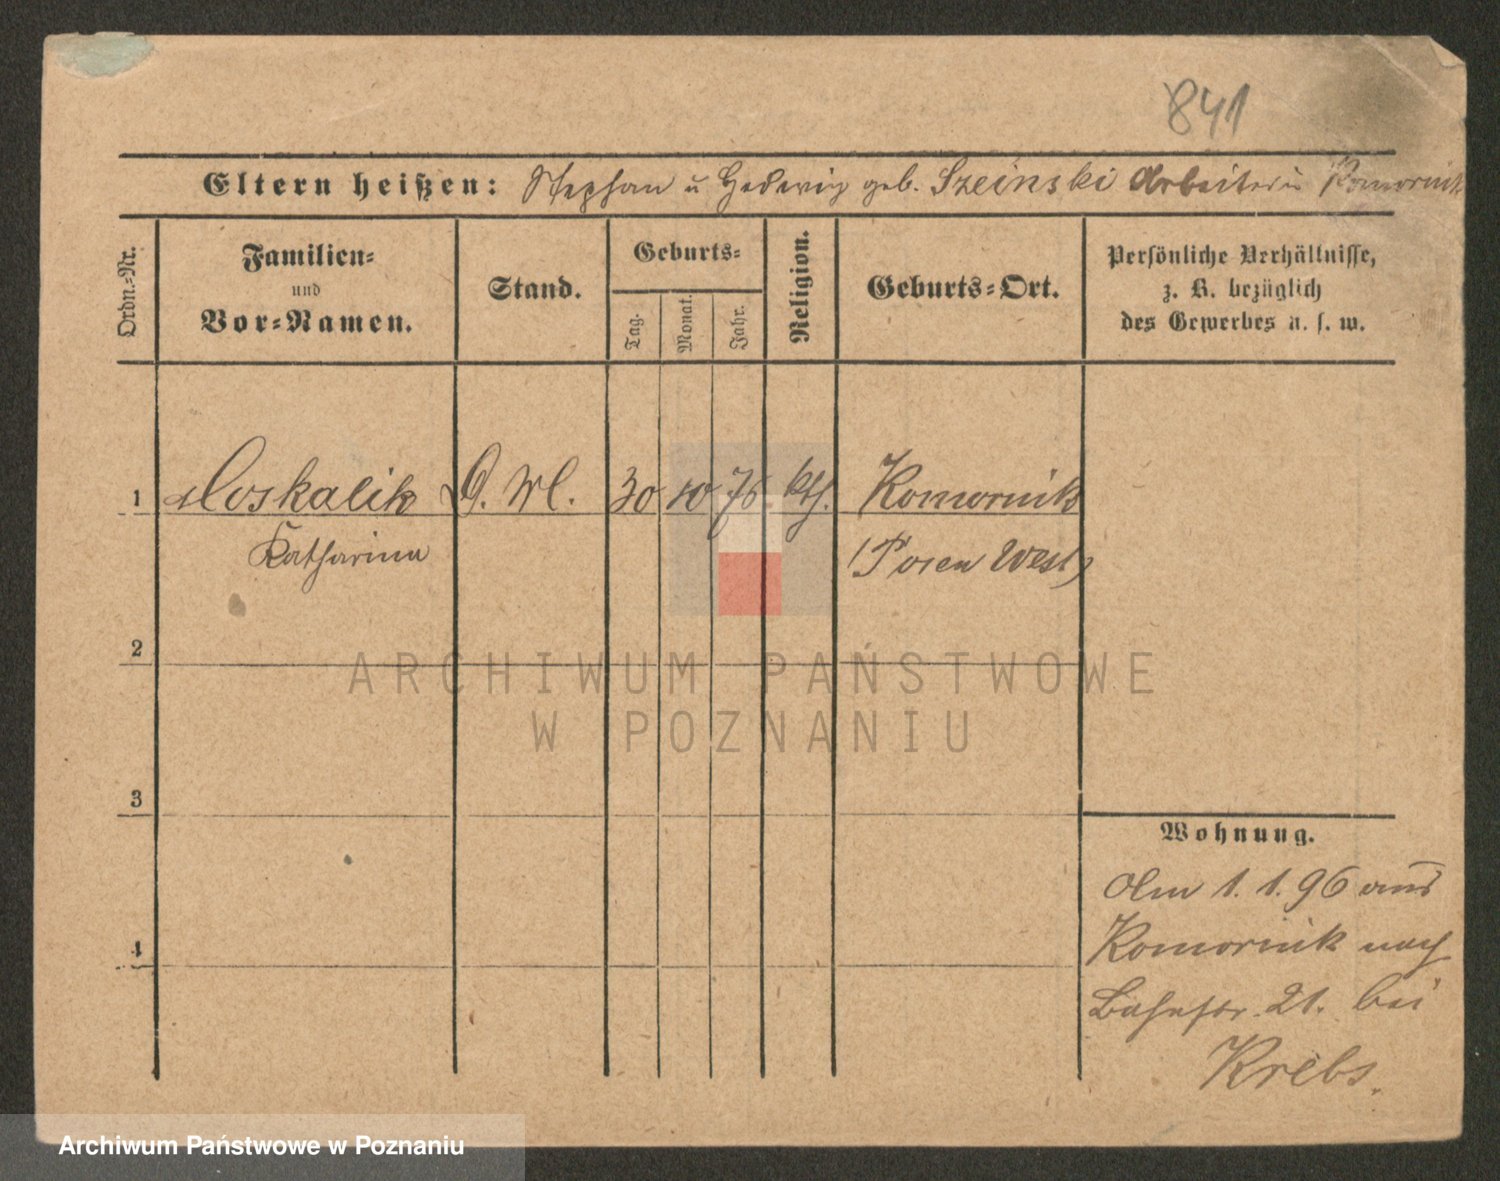 841
Eltern heißen: Stephan u Hedwig geb. Szeinski Arbeiter in Komornik
Ordn.-Nr.
Familien-
und
Vor-Namen.
Stand.
Geburts-
Tag.
Monat.
Jahr.
Religion.
Geburts-Ort.
Persönliche Verhältnisse,
z. B. bezüglich
des Gewerbes u. s. w.
1 Moskalik 30 10 76 kth. Komornik
Katharina (Posen West)
2
3
4
Wohnung.
Am 1. 1. 96 aus
Komornik nach
Bahnstr. 21. bei
Krebs.
ARCHIWUM PAŃSTWOWE
W POZNANIU
Archiwum Państwowe w Poznaniu